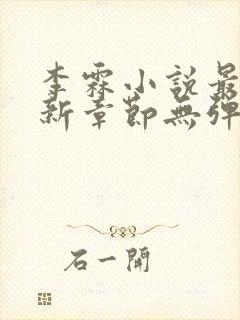 李霖小説最
新章節無彈
石一開